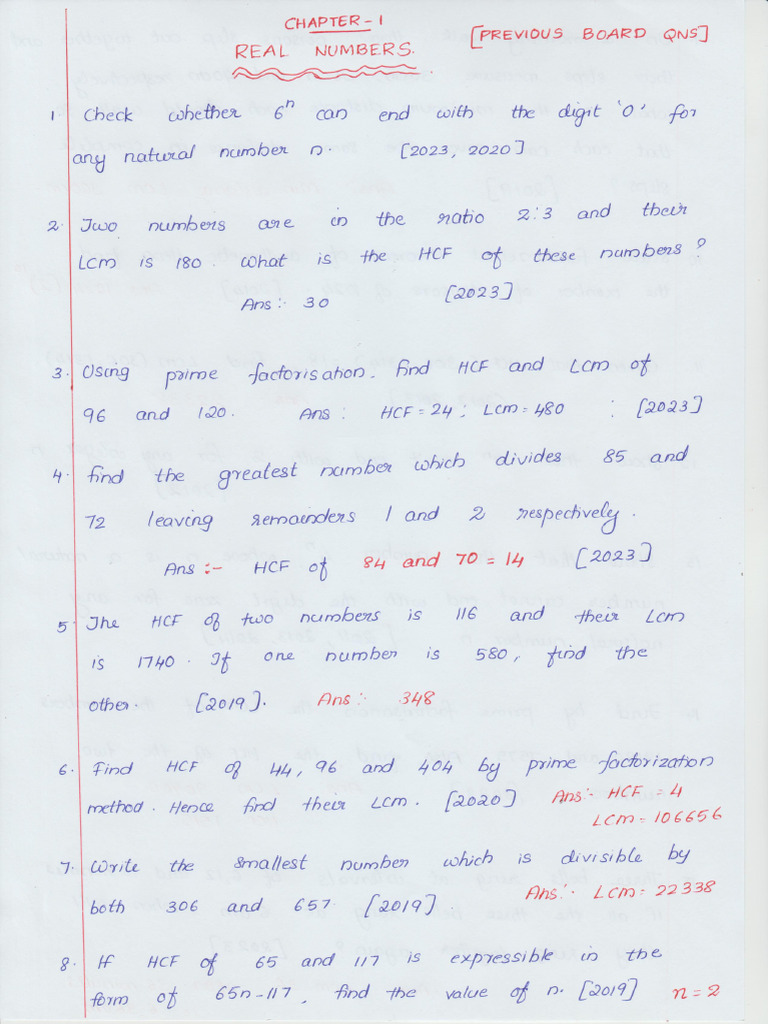 CHAPTER-1
REAL NUMBERS. [PREVIOUS BOARD QNS]
1 Check whether 6ⁿ can end with the digit '0' for
any natural number n. [2023, 2020]
2. Two numbers are in the ratio 2:3 and their
LCM is 180. What is the HCF of these numbers?
Ans:- 30 [2023]
3. Using prime factorisation. find HCF and LCM of
96 and 120. Ans: HCF=24; LCM=480 : [2023]
4. find the greatest number which divides 85 and
72 leaving remainders 1 and 2 respectively.
Ans:- HCF of 84 and 70 = 14 [2023]
5. The HCF of two numbers is 116 and their LCM
is 1740. If one number is 580, find the
other. [2019]. Ans:- 348
6. Find HCF of 44, 96 and 404 by prime factorization
method. Hence find their LCM. [2020] Ans:- HCF = 4
LCM=106656
7. Write the smallest number which is divisible by
both 306 and 657. [2019] Ans:- LCM=22338
8. If HCF of 65 and 117 is expressible in the
form of 65n-117, find the value of n. [2019] n=2